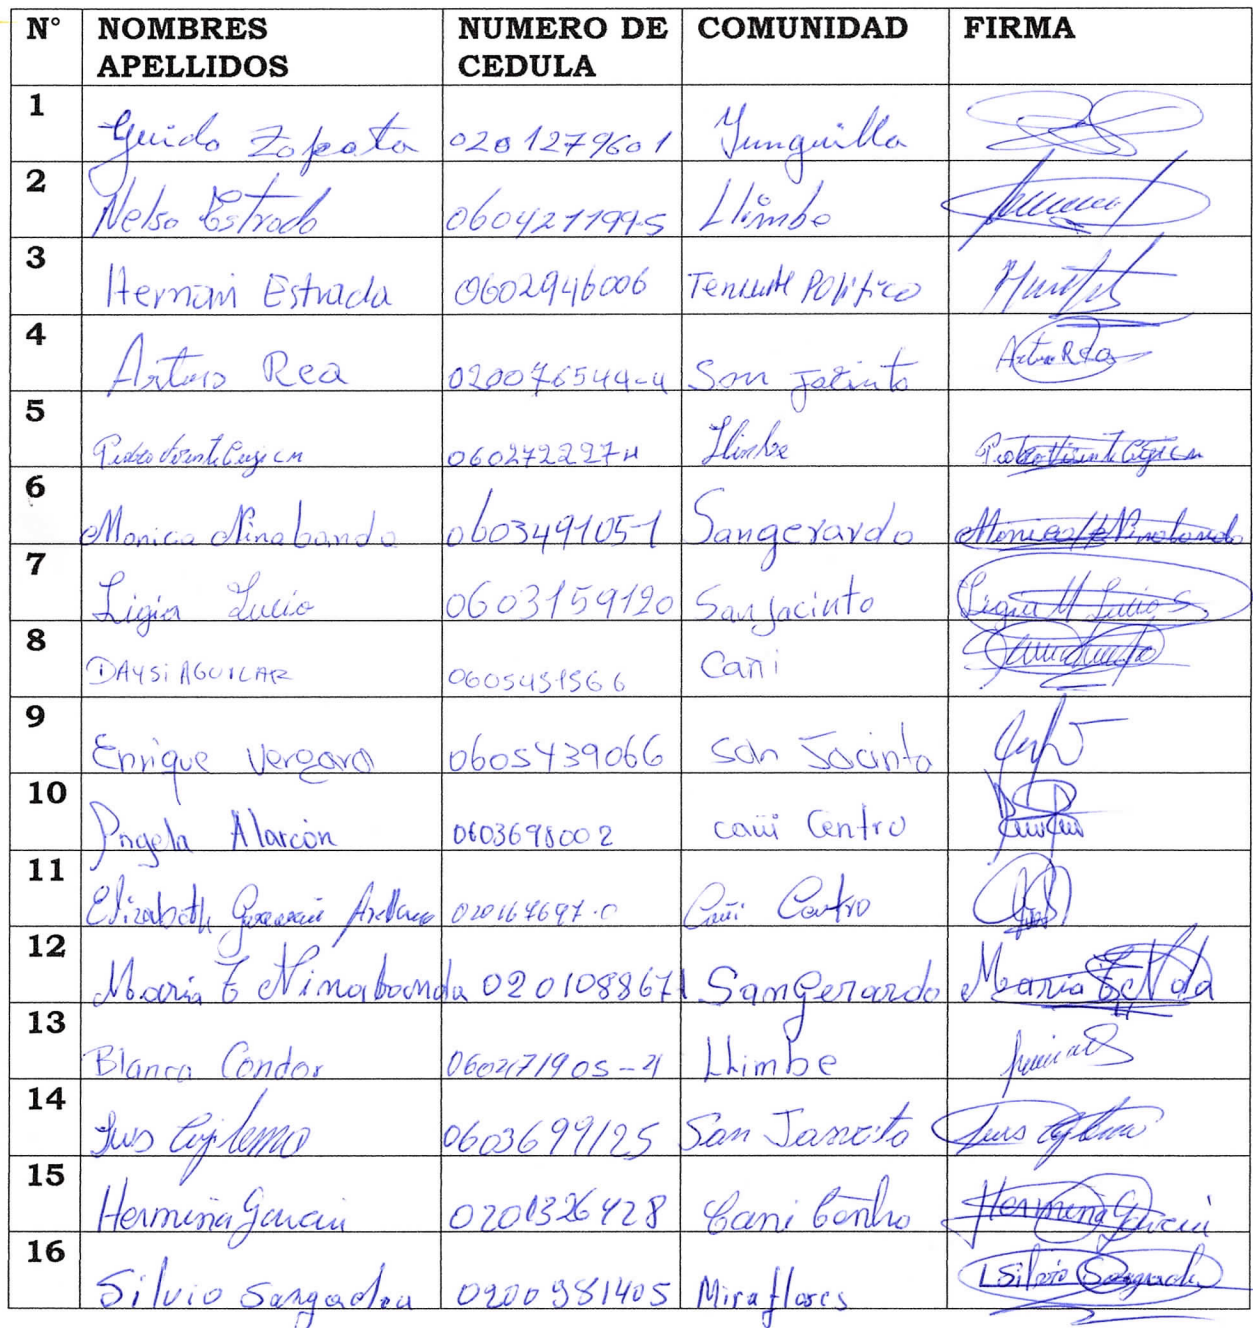 N° NOMBRES APELLIDOS NUMERO DE CEDULA COMUNIDAD FIRMA
1 Guido Zapata 0201279601 Yunguilla
2 Nelso Estrada 060421199-5 Llimbe
3 Hernan Estrada 0602946006 Teniente Politico
4 Arturo Rea 020076544-4 San Jacinto Arturo Rea
5 Pedro Vicente 060272227 Llimbe Pedro Vicente
6 Monica Ninabanda 060349105-1 Sangerardo Monica
7 Ligia Lucio 0603159120 San Jacinto Ligia M Lucio S
8 DAYSI AGUILAR Cañi
9 Enrique Vergara 0605439066 San Jacinto
10 Angela Alarcón 0603698002 cañi Centro
11 Elizabeth Arellano 020167697-0 Cañi Centro
12 Maria E Ninabanda 0201088671 SanGerardo Maria E
13 Blanca Condor Llimbe
14 Luis Cujilema 0603699125 San Luis Cujilema
15 Herminia 0201326428 Cani Centro Herminia
16 Silvio Sangacha 0200981405 Miraflores Silvio Sangacha